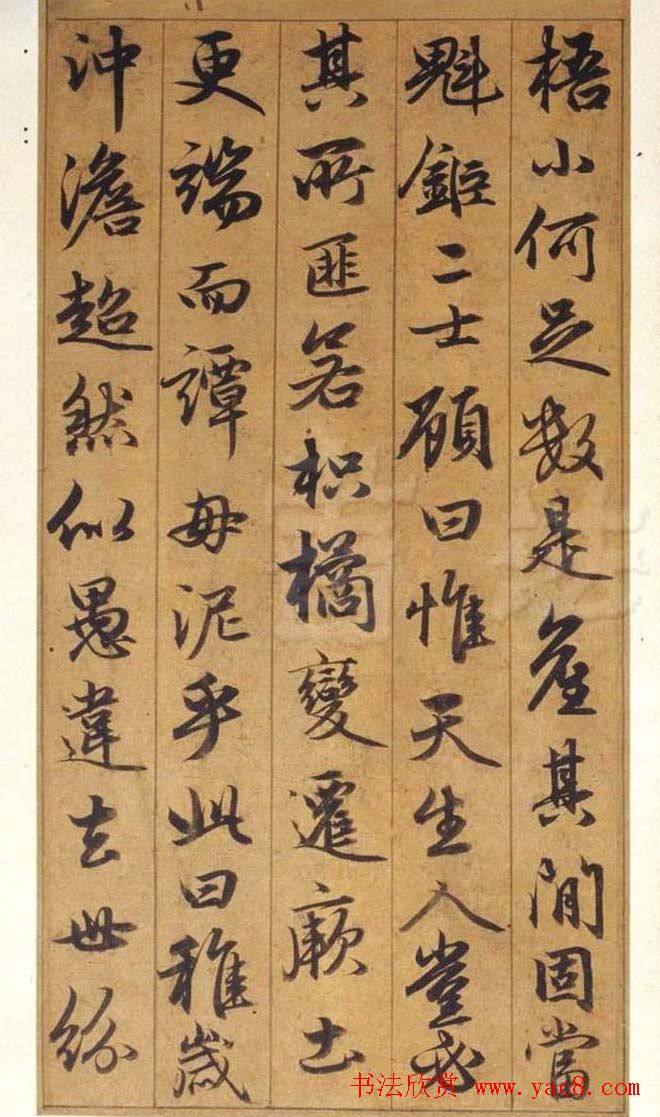 梧小何足數是產其間固當
魁鉅二士顧曰惟天生人豈必
其所匪若枳橘變遷厥土
更端而譚毋泥乎此曰稚歲
沖澹超然似愚違去世紛
书法欣赏 www.yac8.com